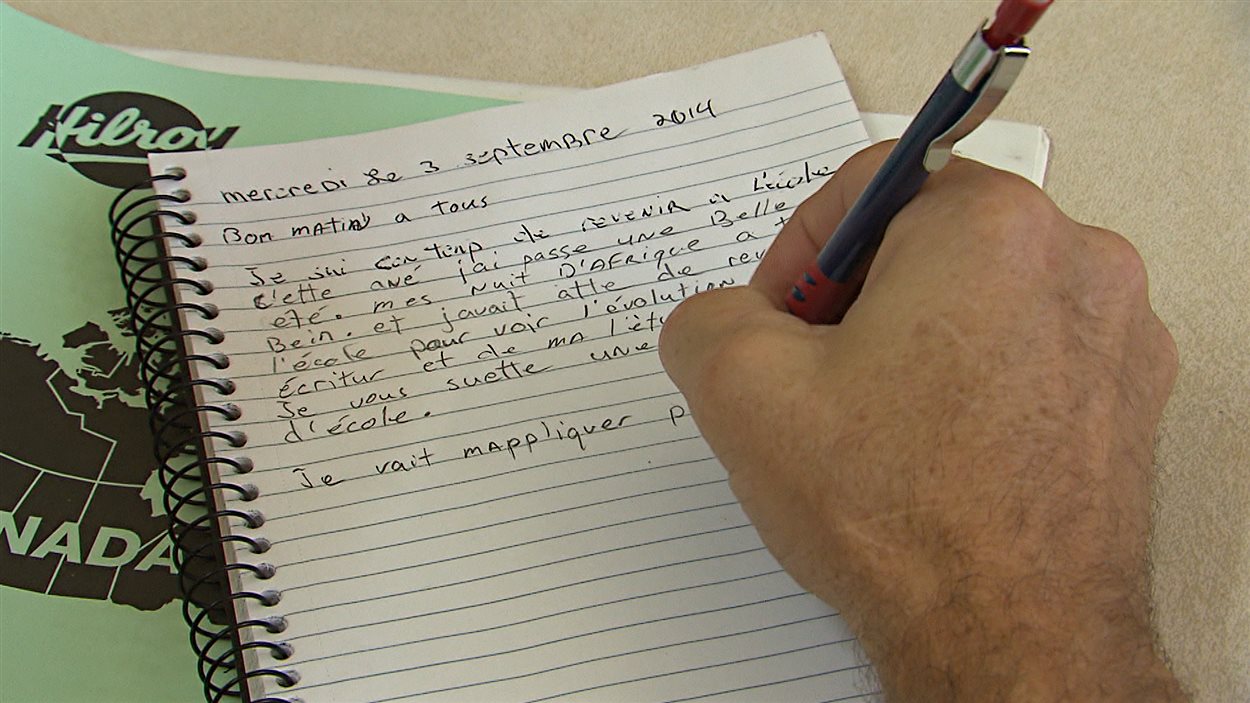 Hilroy
NADA
mercredi le 3 septembre 2014
Bon matin a tous
Je sui conten de revenir a l'école
C'ette ané j'ai passe une Belle
eté. mes Nuit D'AFRique a
Bein. et javait atte de rev
l'école pour voir l'évolution
écritur et de ma l'étu
Je vous suette une
d'école.
Je vait mappliquer p